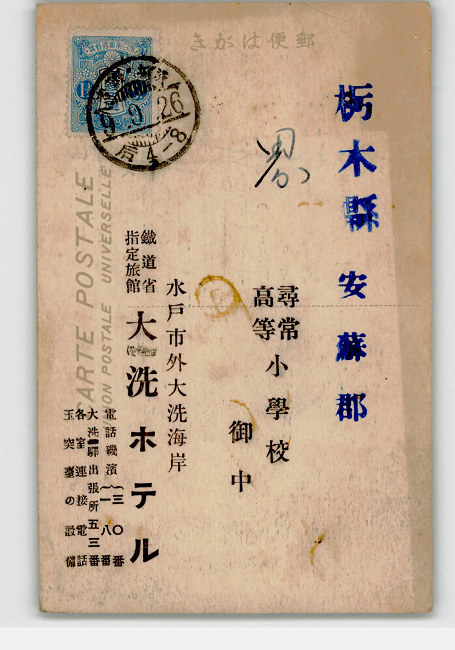 郵便はがき
栃木縣
安蘇郡
尋常
高等
小學校
御中
水戸市外大洗海岸
鐵道省
指定旅館
大洗ホテル
電話磯濱
三〇番
一八番
大洗驛出張所五三番
各室連接電話
玉突臺の設備
CARTE POSTALE
UNION POSTALE UNIVERSELLE
9.9.26
后4-8